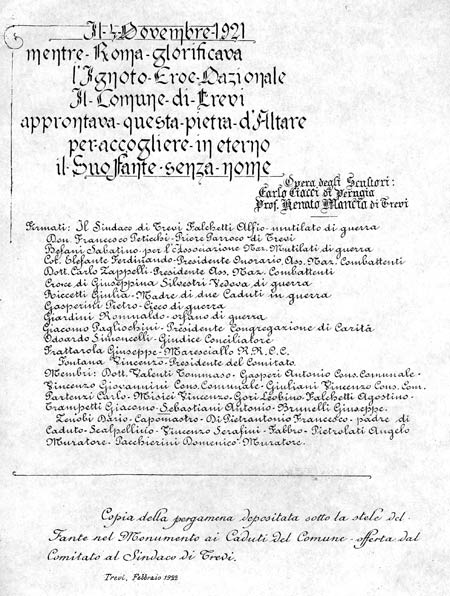 Il 4 Novembre 1921
mentre · Roma · glorificava
l'Ignoto · Eroe · Nazionale
Il · Comune · di · Trevi
approntava · questa · pietra · d'Altare
per · accogliere · in · eterno
il · Suo Fante · senza · nome
Opera degli Scultori:
Carlo Ciacci di Perugia
Prof. Renato Mancia di Trevi
Firmati: Il Sindaco di Trevi Falchetti Alfio - mutilato di guerra
Don Francesco Petichi - Priore Parroco di Trevi
Befani Sabatino per l'Associazione Naz. Mutilati di guerra
Col. Elefante Ferdinando - Presidente Onorario Ass. Naz. Combattenti
Dott. Carlo Zappelli - Presidente Ass. Naz. Combattenti
Croce di Giuseppina Silvestri Vedova di guerra
Riccetti Giulia - Madre di due Caduti in guerra
Gasperini Pietro - Cieco di guerra
Giardini Romualdo - orfano di guerra
Giacomo Pagliochini - Presidente Congregazione di Carità
Odoardo Simoncelli - Giudice Conciliatore
Frattarola Giuseppe - Maresciallo R.R.C.C.
Fontana Vincenzo - Presidente del Comitato.
Membri: Dott. Valenti Tommaso - Gasperi Antonio Cons. Comunale -
Vincenzo Giovannini Cons. Comunale - Giuliani Vincenzo Cons. Com.
Partenzi Carlo - Misici Vincenzo - Gori Leobino - Falchetti Agostino -
Trampetti Giacomo - Sebastiani Antonio - Brunelli Giuseppe.
Zenobi Dario - Capomastro - Di Pietrantonio Francesco - padre di
Caduto - Scalpellino - Vincenzo Serafini - Fabbro - Pietrolati Angelo
Muratore - Pacchierini Domenico Muratore.
Copia della pergamena depositata sotto la stele del
Fante nel Monumento ai Caduti del Comune - offerta dal
Comitato al Sindaco di Trevi.
Trevi, Febbraio 1922